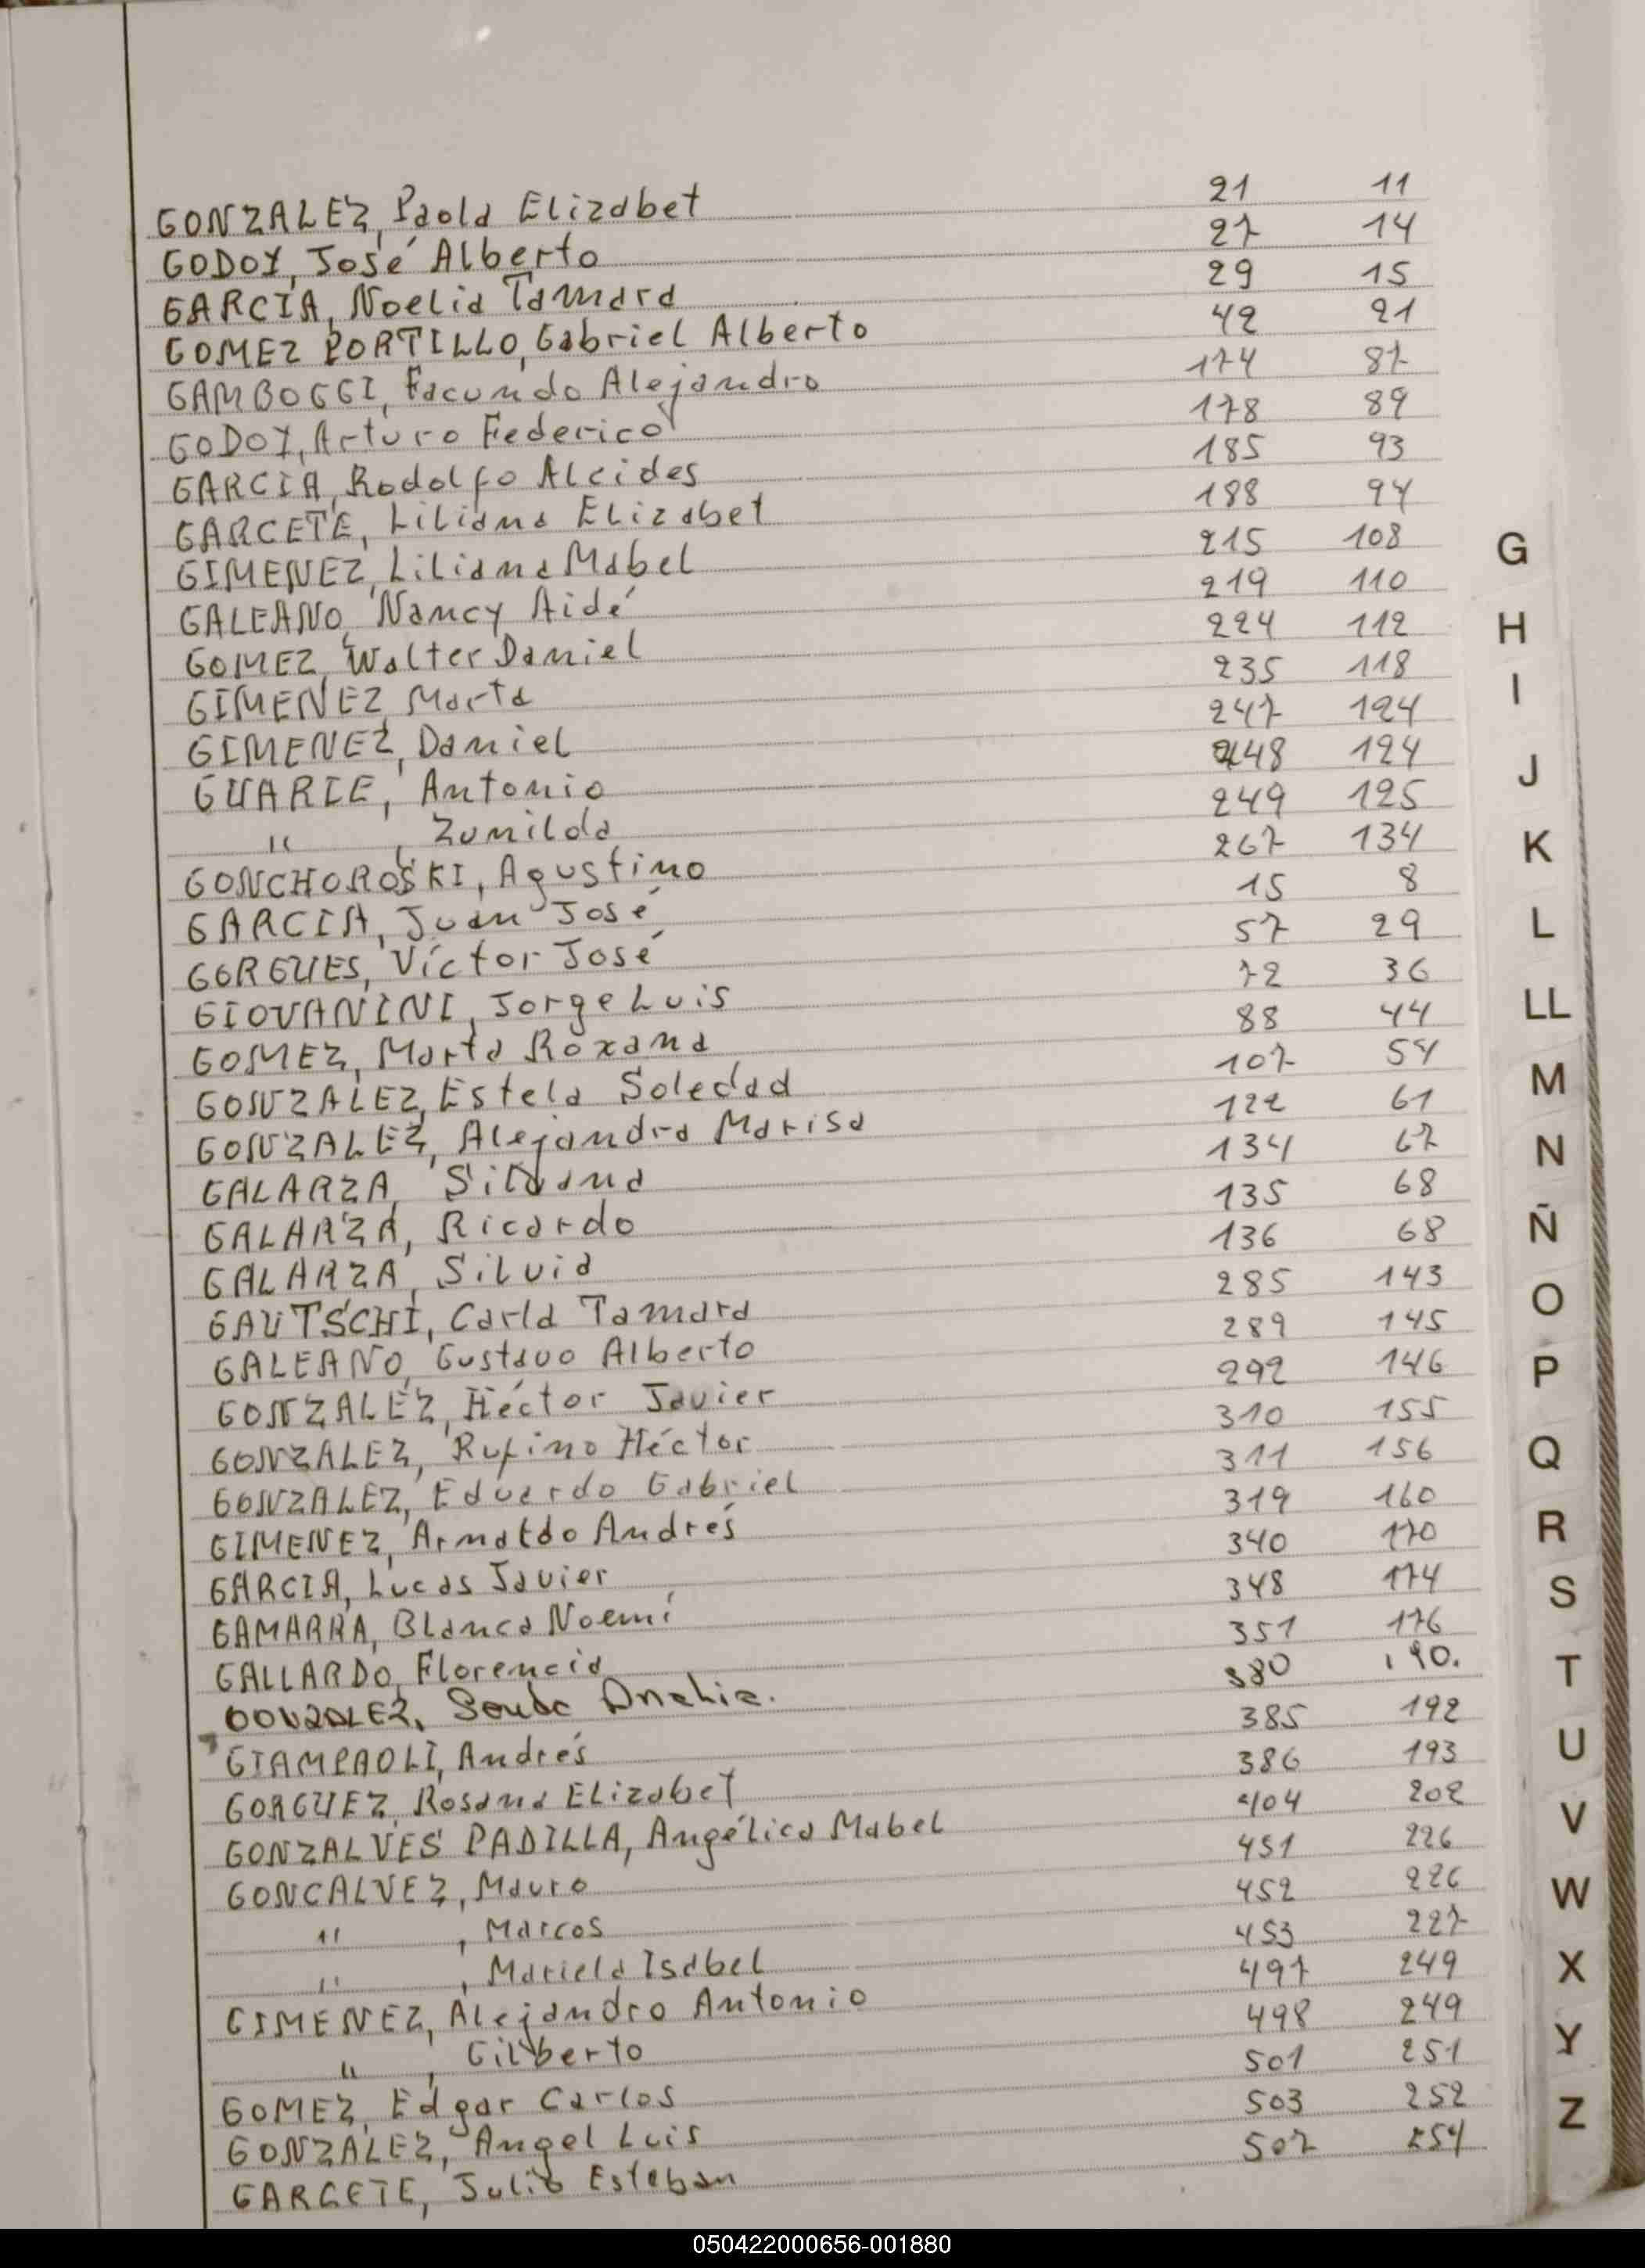 GONZALEZ, Paola Elizabet 21 11
GODOY, José Alberto 27 14
GARCÍA, Noelia Tamara 29 15
GOMEZ PORTILLO, Gabriel Alberto 42 21
GAMBOGGI, Facundo Alejandro 174 87
GODOY, Arturo Federico 178 89
GARCIA, Rodolfo Alcides 185 93
GARCETE, Liliana Elizabet 188 94
GIMENEZ, Liliana Mabel 215 108
GALEANO, Nancy Aidé 219 110
GOMEZ, Walter Daniel 224 112
GIMENEZ, Marta 235 118
GIMENEZ, Daniel 247 124
GUARIE, Antonio 248 124
" , Zunilda 249 125
GONCHOROSKI, Agustino 267 134
GARCIA, Juan José 15 8
GORGUES, Víctor José 57 29
GIOVANINI, Jorge Luis 72 36
GOMEZ, Marta Roxana 88 44
GONZALEZ, Estela Soledad 107 54
GONZALEZ, Alejandra Marisa 122 61
GALARZA, Silvana 134 67
GALARZA, Ricardo 135 68
GALARZA, Silvia 136 68
GAUTSCHI, Carla Tamara 285 143
GALEANO, Gustavo Alberto 289 145
GONZALEZ, Héctor Javier 292 146
GONZALEZ, Rufino Héctor 310 155
GONZALEZ, Eduardo Gabriel 311 156
GIMENEZ, Arnaldo Andrés 319 160
GARCIA, Lucas Javier 340 170
GAMARRA, Blanca Noemí 348 174
GALLARDO, Florencia 351 176
GONZALEZ, Analia. 380 190.
GIAMPAOLI, Andrés 385 192
GORGUEZ, Rosana Elizabet 386 193
GONZALVES PADILLA, Angélica Mabel 404 202
GONCALVEZ, Mauro 451 226
" , Marcos 452 226
" , Mariela Isabel 453 227
GIMENEZ, Alejandro Antonio 497 249
" , Gilberto 498 249
GOMEZ, Edgar Carlos 501 251
GONZALEZ, Angel Luis 503 252
GARCETE, Julio Esteban 507 254
G
H
I
J
K
L
LL
M
N
Ñ
O
P
Q
R
S
T
U
V
W
X
Y
Z
050422000656-001880